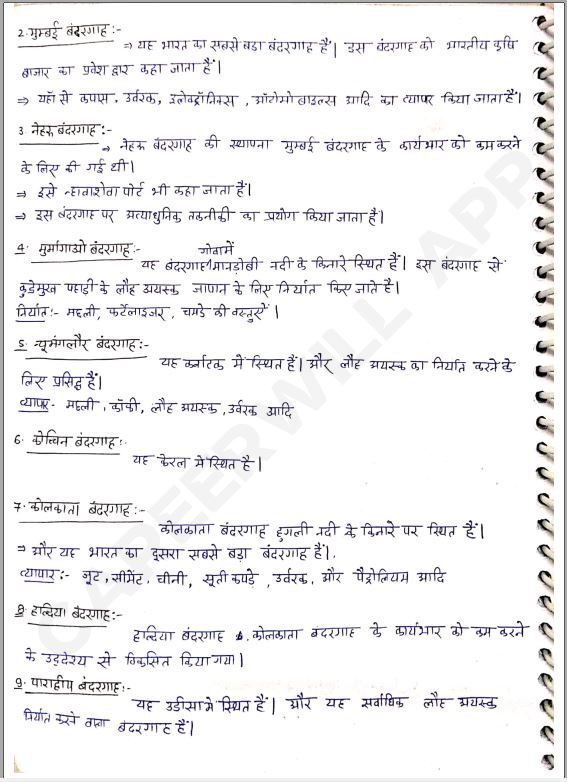 2. मुम्बई बंदरगाह :-
⇒ यह भारत का सबसे बडा बंदरगाह हैं। उस बंदरगाह को भारतीय कृषि
बाजार का प्रवेश द्वार कहा जाता हैं।
⇒ यहाँ से कपास, उर्वरक, इलेक्ट्रॉनिक्स, ऑटोमोबाइल्स आदि का व्यापर किया जाता हैं।
3. नेहरू बंदरगाह :-
⇒ नेहरू बंदरगाह की स्थापना मुम्बई बंदरगाह के कार्यभार को कम करने
के लिए की गई थी।
⇒ इसे न्हावाशेवा पोर्ट भी कहा जाता हैं।
⇒ इस बंदरगाह पर अत्याधुनिक तकनीकी का प्रयोग किया जाता हैं।
4. मुर्मागाओ बंदरगाह :-
गोवा में
यह बंदरगाह मानडोबी नदी के किनारे स्थित हैं। इस बंदरगाह से
कुडेमुख पहाडी के लौह अयस्क जापान के लिए निर्यात किए जाते हैं।
निर्यात :- मछली, फर्टेलाइजर, चमडे की वस्तुऐं।
5. न्यूमंगलौर बंदरगाह :-
यह कर्नाटक में स्थित हैं। और लौह अयस्क का निर्यात करने के
लिए प्रसिद्ध हैं।
व्यापर - मछली, कॉफी, लौह अयस्क, उर्वरक आदि
6. कोच्चिन बंदरगाह :-
यह केरल में स्थित हैं।
7. कोलकाता बंदरगाह :-
कोलकाता बंदरगाह हुगली नदी के किनारे पर स्थित हैं।
⇒ और यह भारत का दूसरा सबसे बड़ा बंदरगाह हैं।
व्यापार :- जूट, सीमेंट, चीनी, सूती कपडे, उर्वरक, और पैट्रोलियम आदि
8. हाल्दिया बंदरगाह :-
हाल्दिया बंदरगाह कोलकाता बंदरगाह के कार्यभार को कम करने
के उद्देश्य से विकसित किया गया।
9. पारादीप बंदरगाह :-
यह उडीसा में स्थित हैं। और यह सर्वाधिक लौह अयस्क
निर्यात करने वाला बंदरगाह हैं।
CAREERWILL APP